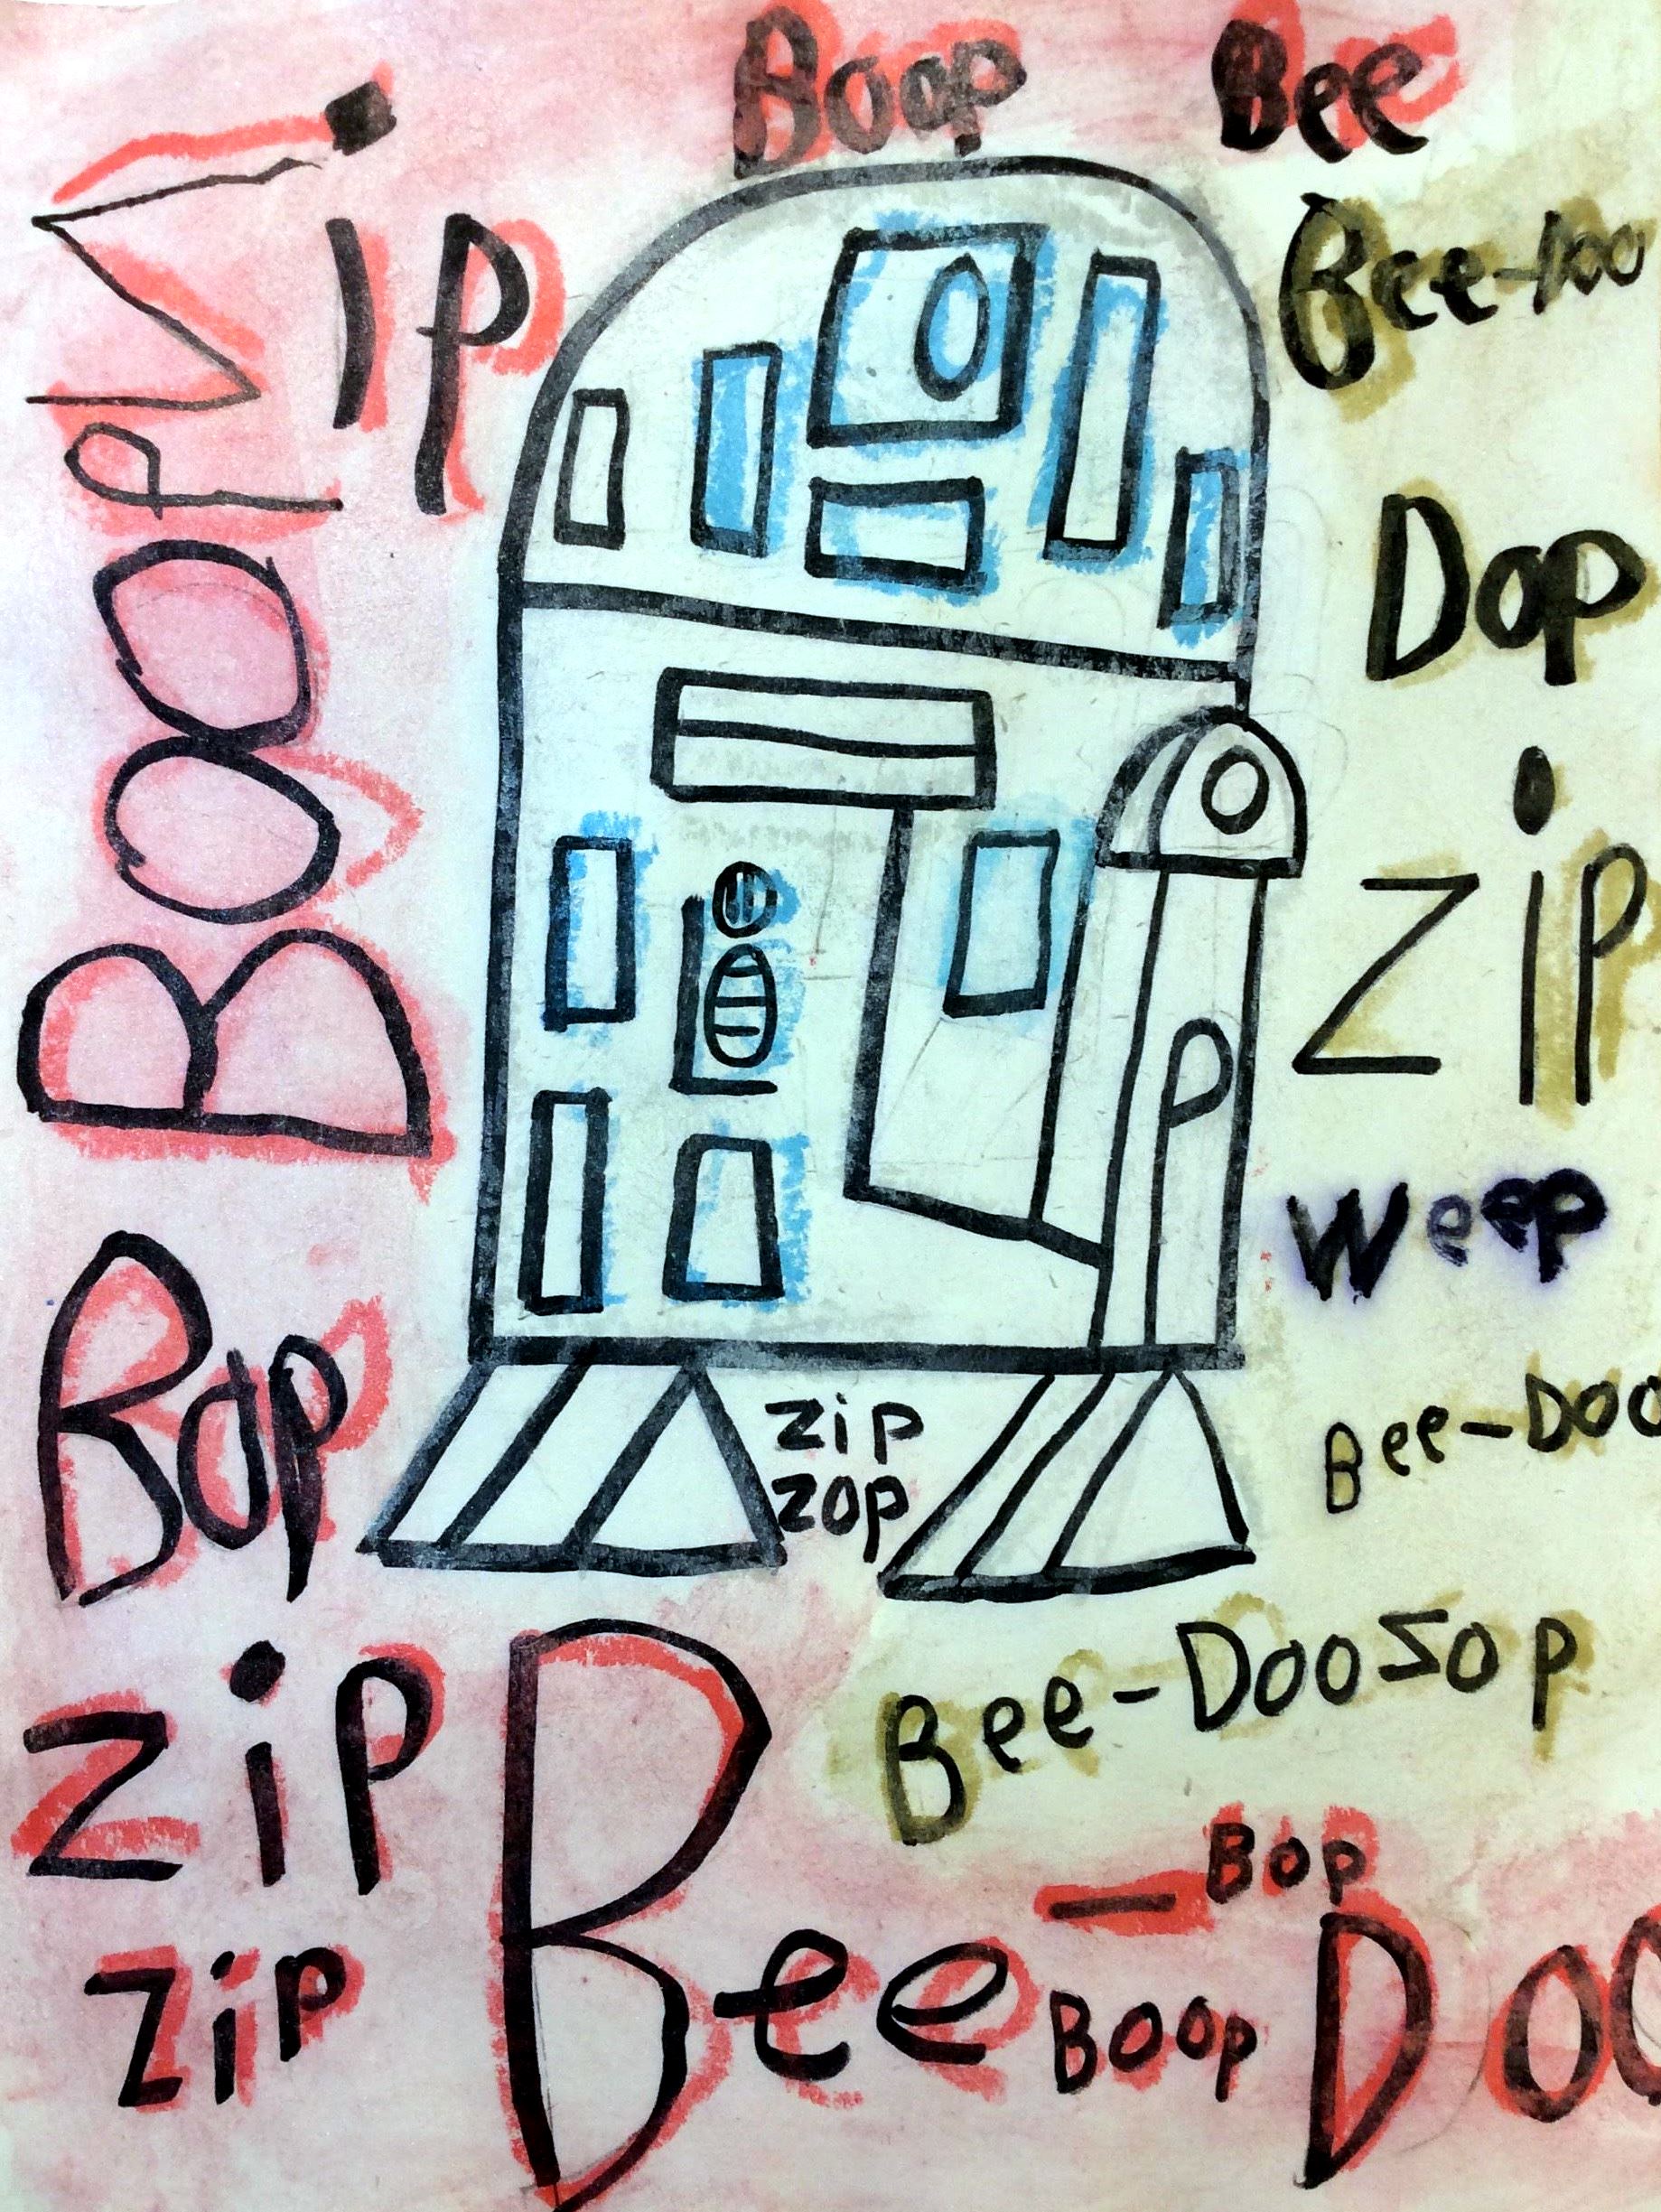 Boop Bee
Zip
Bee-Doo
Boop
Dop
Zip
P
Weep
Bop
Bee-Doo
Zip
Zop
Bee-Doo Zop
Zip
Bee-Doo
-Bop
Boop
Zip